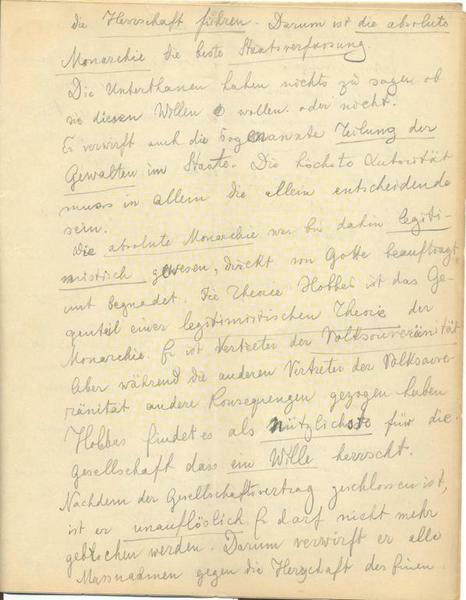 die Herrschaft führen. Darum ist die absolute
Monarchie die beste Staatsverfassung.
Die Unterthanen haben nichts zu sagen ob
sie diesen Willen wollen oder nicht.
Er verwirft auch die sogenannte Teilung der
Gewalten im Staate. Die höchste Autorität
muss in allem die allein entscheidende
sein.
Die absolute Monarchie war bis dahin legiti-
mistisch gewesen, direkt von Gotte beauftragt
und begnadet. Die Theorie Hobbes ist das Ge-
genteil einer legitimistischen Theorie der
Monarchie. Er ist Vertreter der Volksouveränität
Aber während die anderen Vertreter der Volksouve-
ränität andere Konsequenzen gezogen haben
Hobbes findet es als nützlichste für die
Gesellschaft dass ein Wille herrscht.
Nachdem der Gesellschaftsvertrag geschlossen ist,
ist er unauflöslich. Er darf nicht mehr
gebrochen werden. Darum verwirft er alle
Massnahmen gegen die Herschaft des Einen.